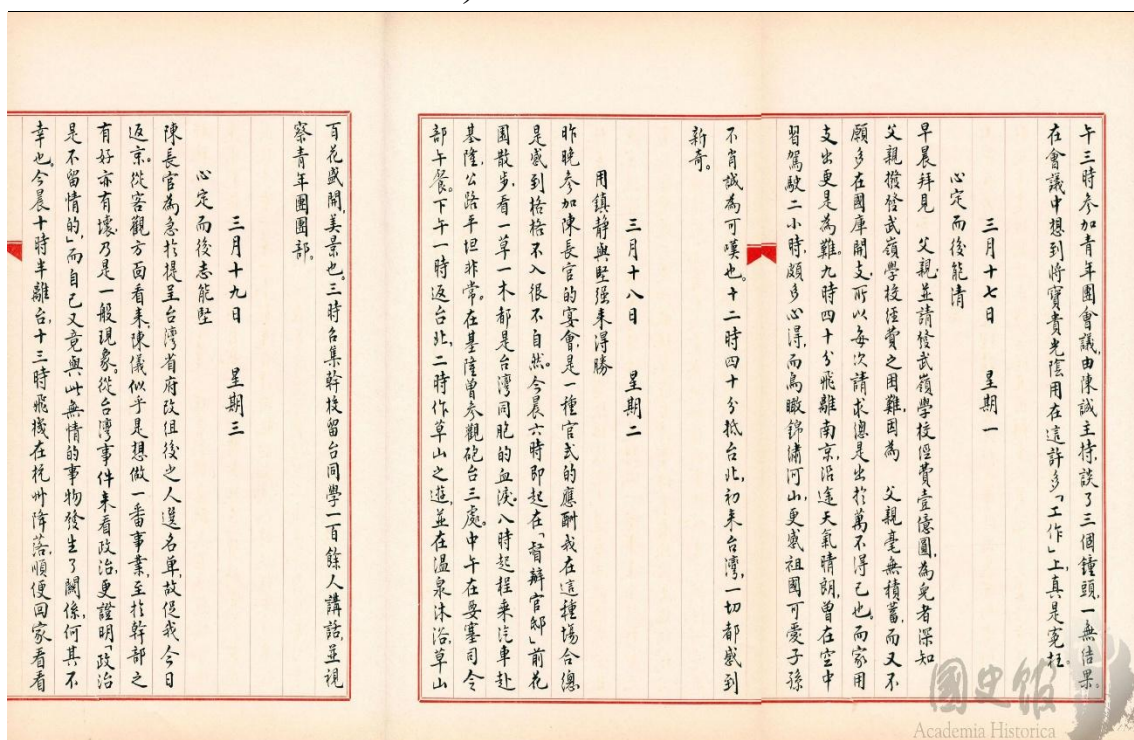 午三時參加青年團會議，由陳誠主持，談了三個鐘頭，一無結果。
在會議中想到將寶貴光陰用在這許多「工作」上，真是冤枉。
三月十七日　星期一
心定而後能清
早晨拜見　父親，並請發武嶺學校經費壹億圓，為兒者深知
父親撥發武嶺學校經費之困難，因為　父親毫無積蓄，而又不
願多在國庫開支，所以每次請求總是出於萬不得已也。而家用
支出更是為難。九時四十分飛離南京，沿途天氣晴朗，曾在空中
習駕駛二小時，頗多心得，而鳥瞰錦繡河山，更感祖國可愛，子孫
不肖誠為可嘆也。十二時四十分抵台北，初來台灣，一切都感到
新奇。
三月十八日　星期二
用鎮静與堅强來得勝
昨晚參加陳長官的宴會，是一種官式的應酬，我在這種場合總
是感到格格不入很不自然。今晨六時即起在「督辦官邸」前花
園散步，看一草一木都是台灣同胞的血淚。八時起程乘汽車赴
基隆，公路平坦非常。在基隆曾參觀砲台三處。中午在要塞司令
部午餐。下午一時返台北，二時作草山之遊，並在温泉沐浴，草山
百花盛開，美景也。三時召集幹校留台同學一百餘人講話，並視
察青年團團部。
三月十九日　星期三
心定而後志能堅
陳長官為急於提呈台灣省府改組後之人選名單，故促我今日
返京。從客觀方面看來，陳儀似乎是想做一番事業，至於幹部之
有好亦有壞，乃是一般現象，從台灣事件來看政治，更證明「政治
是不留情的」，而自己又竟與此無情的事物發生了關係，何其不
幸也。今晨十時半離台，十三時飛機在杭州降落，順便回家看看
國史館
Academia Historica